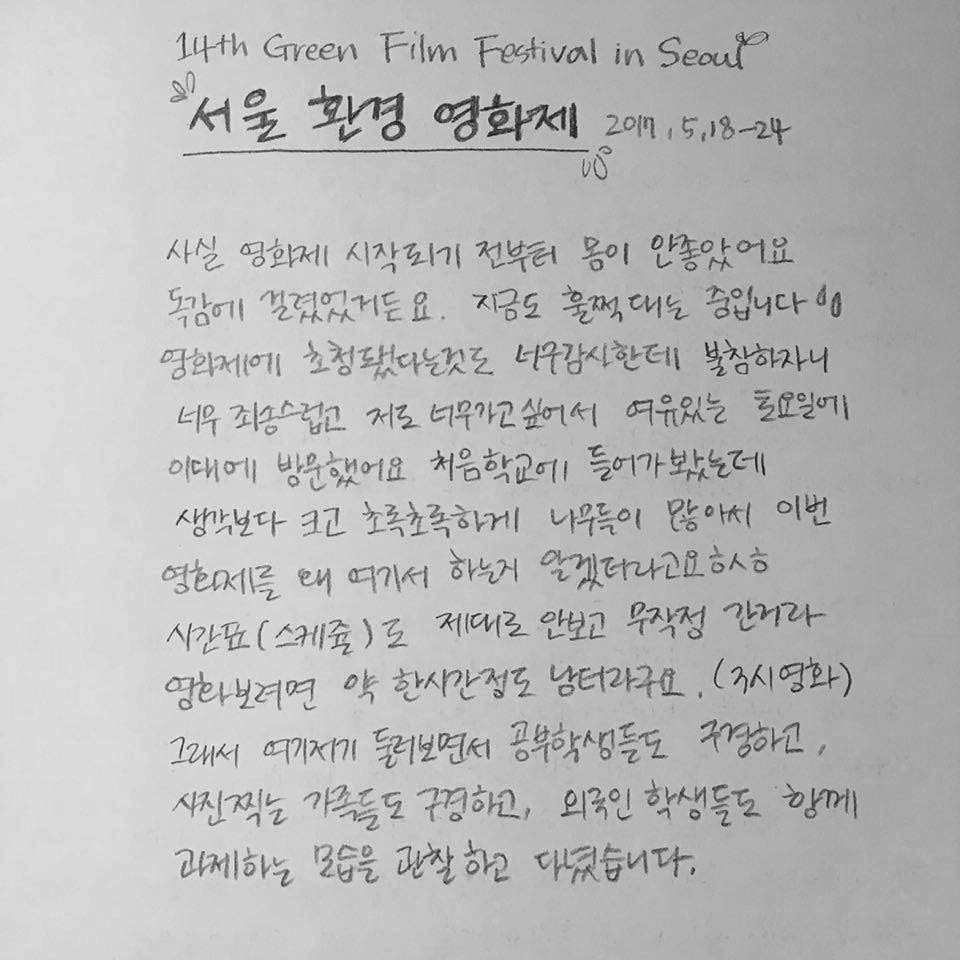 14th Green Film Festival in Seoul
서울 환경 영화제 2017.5.18-24
사실 영화제 시작되기 전부터 몸이 안좋았어요
독감에 걸렸었거든요. 지금도 훌쩍대는 중입니다
영화제에 초청됐다는것도 너무감사한데 불참하자니
너무 죄송스럽고 저도 너무가고싶어서 여유있는 토요일에
이대에 방문했어요 처음학교에 들어가봤는데
생각보다 크고 초록초록하게 나무들이 많아서 이번
영화제를 왜 여기서 하는지 알겠더라고요ㅎㅅㅎ
시간표(스케쥴)도 제대로 안보고 무작정 간거라
영화보려면 약 한시간정도 남더라구요.(3시영화)
그래서 여기저기 둘러보면서 공부학생들도 구경하고,
사진찍는 가족들도 구경하고, 외국인 학생들도 함께
과제하는 모습을 관찰하고 다녔습니다.